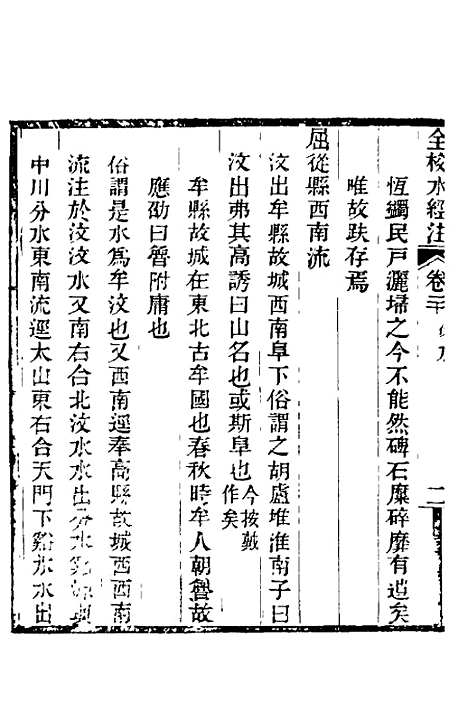 全校水經注
卷二
二
恆蠲民戸灑埽之今不能然碑石糜碎靡有遺矣
唯故趺存焉
屈從縣西南流
汶出牟縣故城西南阜下俗謂之胡盧堆淮南子曰
汶出弗其高誘曰山名也或斯阜也今按戴作矣
牟縣故城在東北古牟國也春秋時牟人朝魯故
應劭曰魯附庸也
俗謂是水爲牟汶也又西南逕奉高縣故城西西南
流注於汶汶水又南右合北汶水水出分水
中川分水東南流逕太山東右合天門下谿水水出